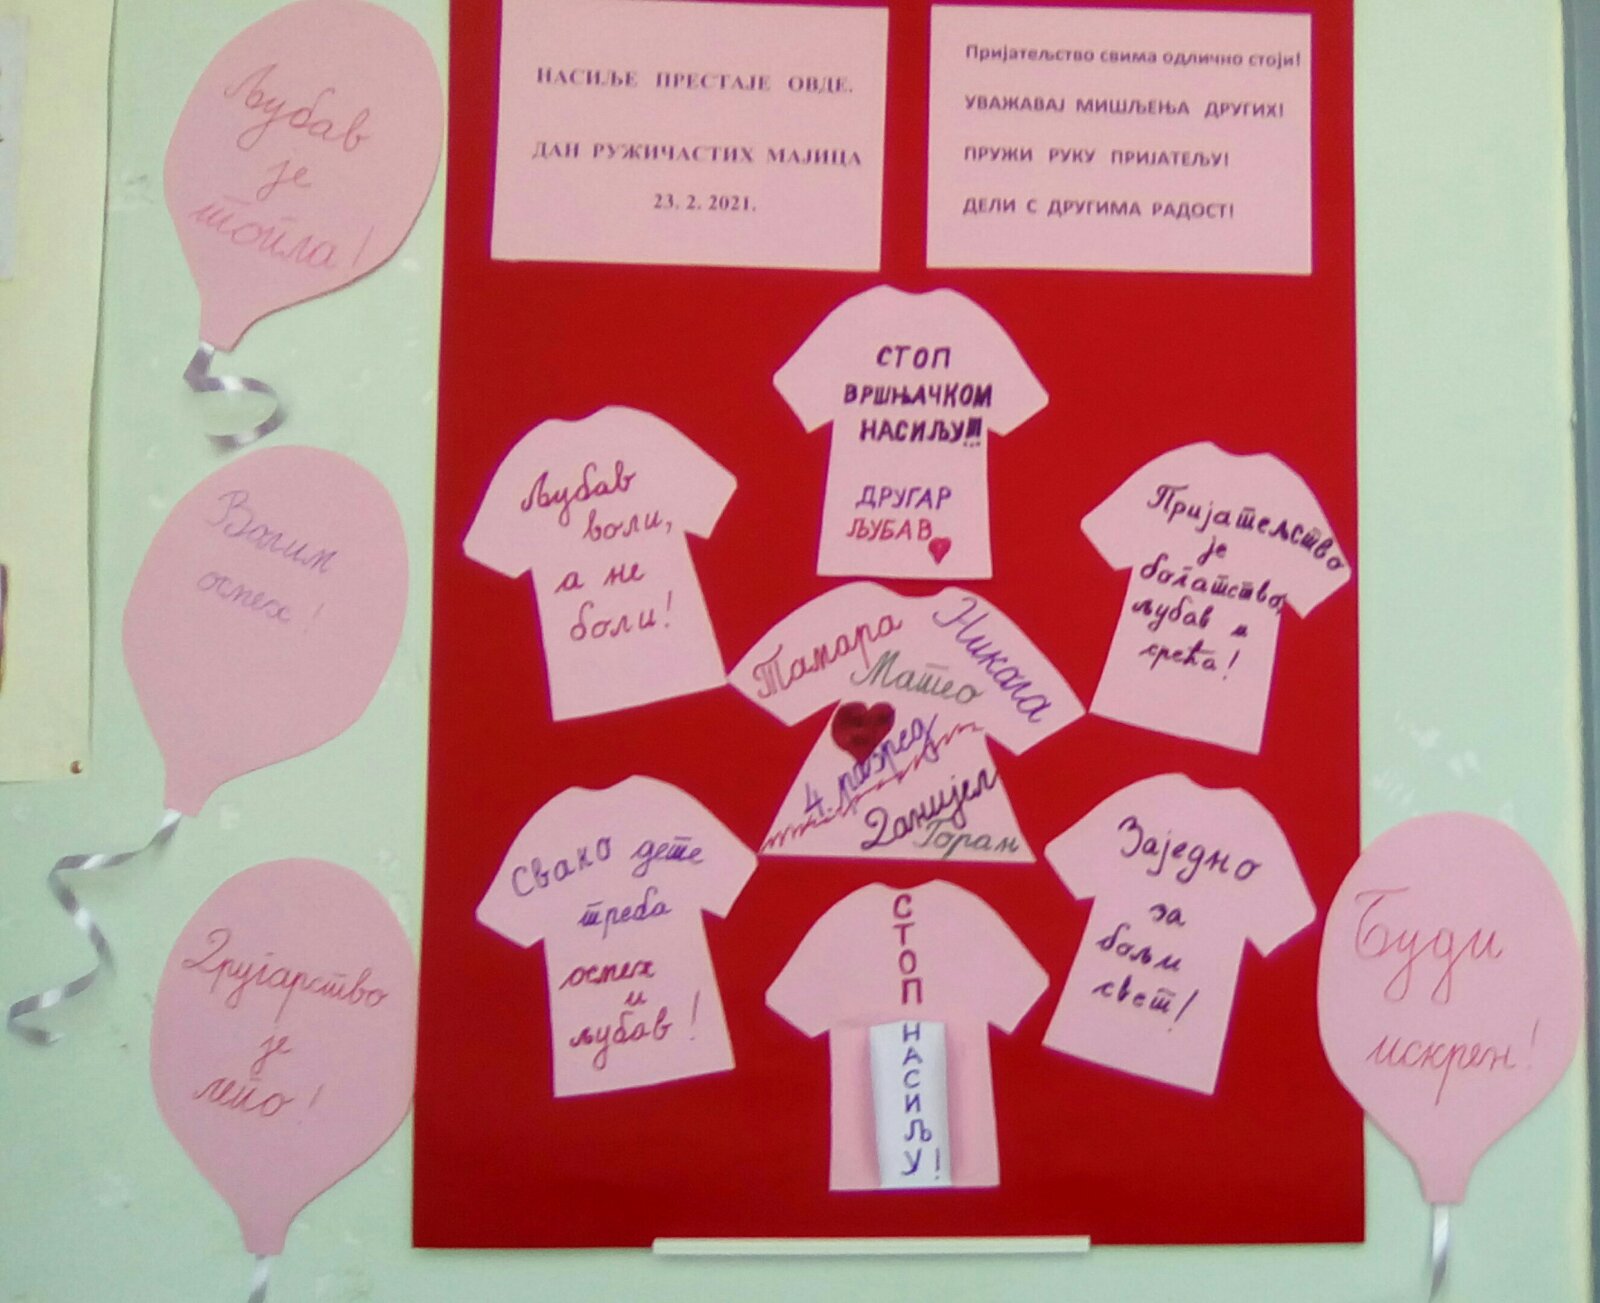 Љубав
је
топла!
Волим
осмех!
Другарство
је
лепо!
НАСИЉЕ ПРЕСТАЈЕ ОВДЕ.
ДАН РУЖИЧАСТИХ МАЈИЦА
23. 2. 2021.
Пријатељство свима одлично стоји!
УВАЖАВАЈ МИШЉЕЊА ДРУГИХ!
ПРУЖИ РУКУ ПРИЈАТЕЉУ!
ДЕЛИ С ДРУГИМА РАДОСТ!
СТОП
ВРШЊАЧКОМ
НАСИЉУ!!!
ДРУГАР
ЉУБАВ
Љубав
воли,
а не
боли!
Пријатељство
је
богатство,
љубав и
срећа!
Тамара
Матео
Никола
4. разред
Данијел
Горан
Свако дете
треба
осмех
и
љубав!
СТОП
НАСИЉУ!
Заједно
за
бољи
свет!
Буди
искрен!